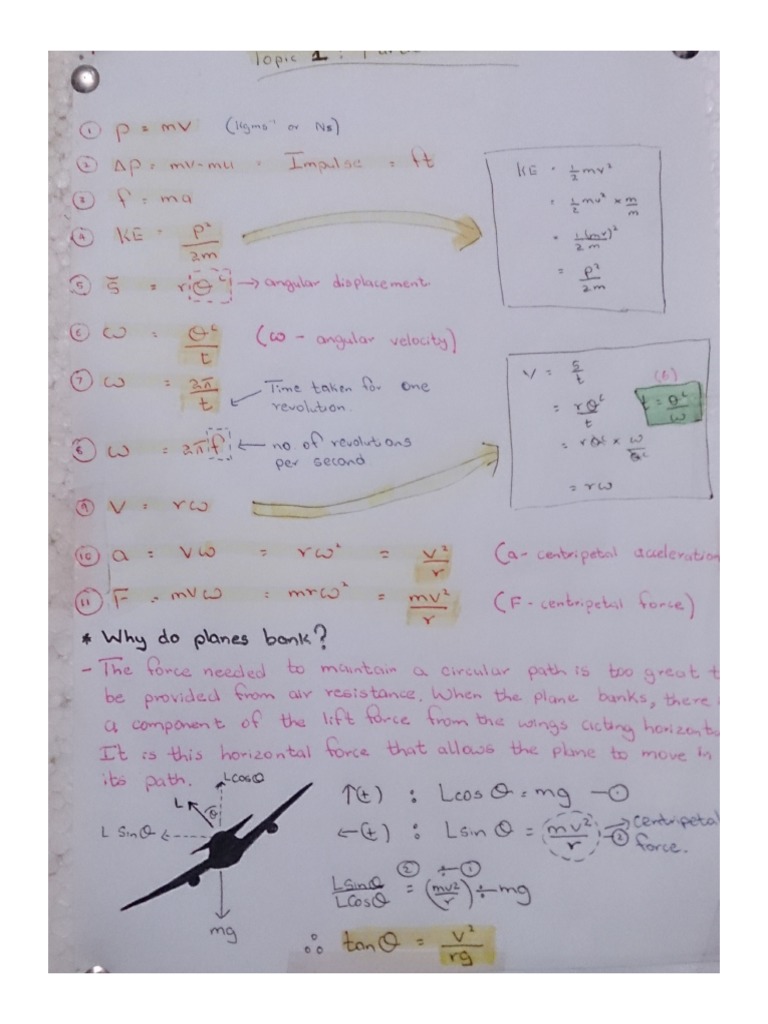 Topic 1 :
① p = mv (kgms⁻¹ or Ns)
② Δp = mv-mu = Impulse = ft
③ f = ma
④ KE = p²/2m
⑤ s̄ = rθᶜ → angular displacement.
⑥ ω = θᶜ/t (ω - angular velocity)
⑦ ω = 2π/t Time taken for one
revolution.
⑧ ω = 2πf ← no of revolutions
per second
⑨ V = rω
⑩ a = vω = rω² = v²/r (a - centripetal acceleration
⑪ F = mvω = mrω² = mv²/r (F - centripetal force)
KE = ½mv²
= ½mv² × m/m
= ½(mv)²/m
= p²/2m
V = s/t (6)
= rθᶜ/t t = θᶜ/ω
= rθᶜ × ω/θᶜ
= rω
* Why do planes bank?
- The force needed to maintain a circular path is too great t
be provided from air resistance. When the plane banks, there
a component of the lift force from the wings acting horizonta
It is this horizontal force that allows the plane to move in
its path.
Lcosθ
L θ
L Sinθ
mg
↑(+) : Lcosθ = mg —①
←(+) : Lsinθ = mv²/r → centripetal
② force.
② ÷ ①
LSinθ/LCosθ = (mv²/r) ÷ mg
∴ tanθ = v²/rg